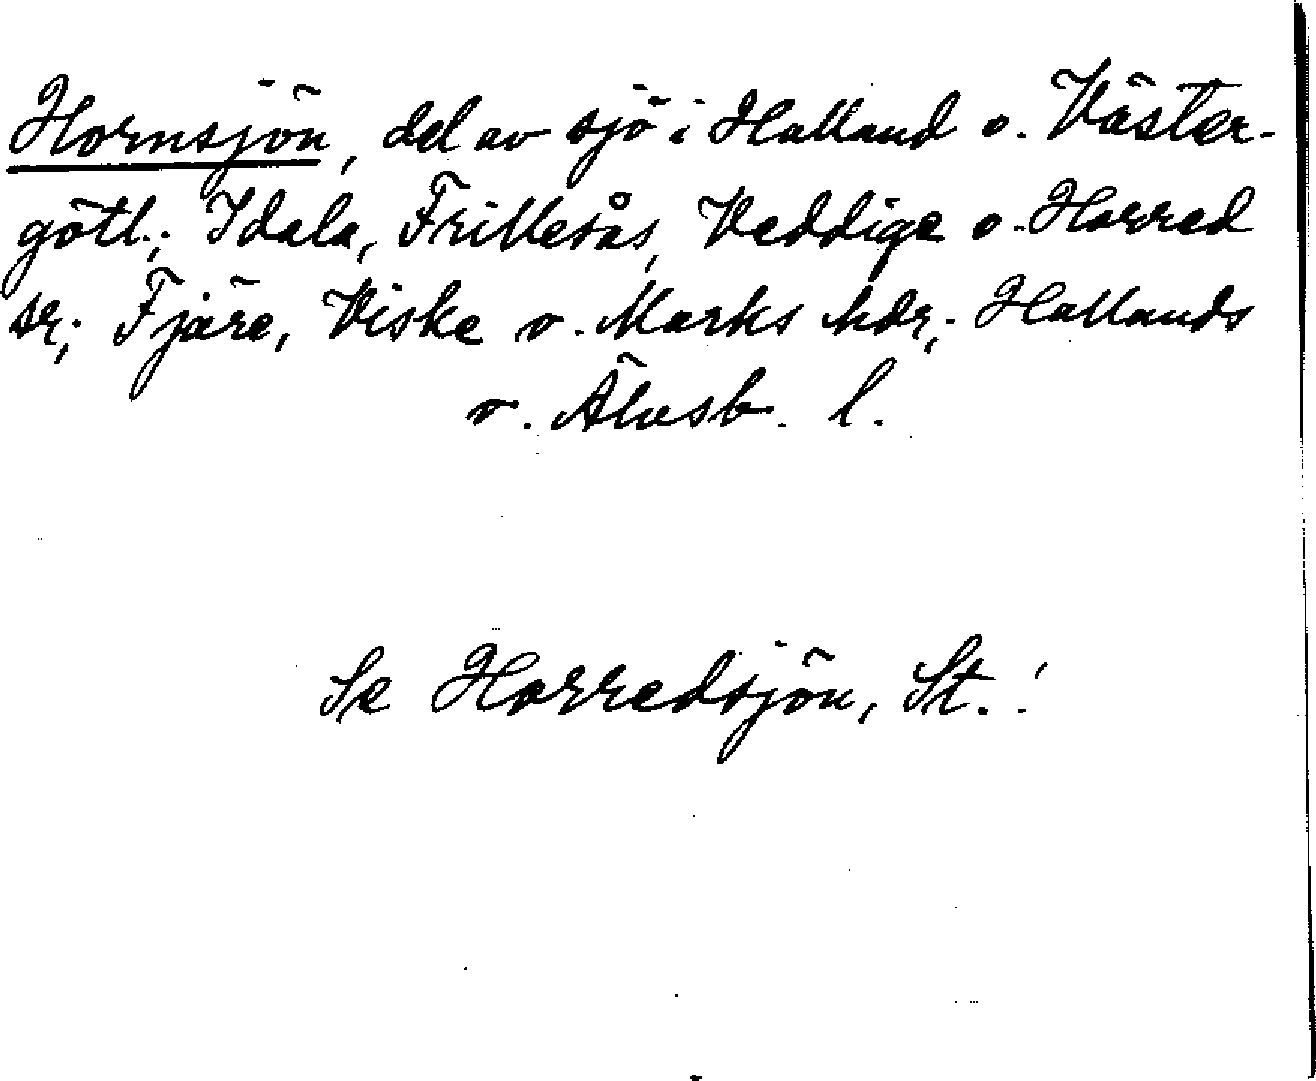 Hornsjön, del av sjö i Halland o. Väster-
götl.; Idala, Frillesås, Veddige o. Horred
sr; Fjäre, Viske o. Marks hdr; Hallands
o. Älvsb. l.
Se Horredsjön, St.!